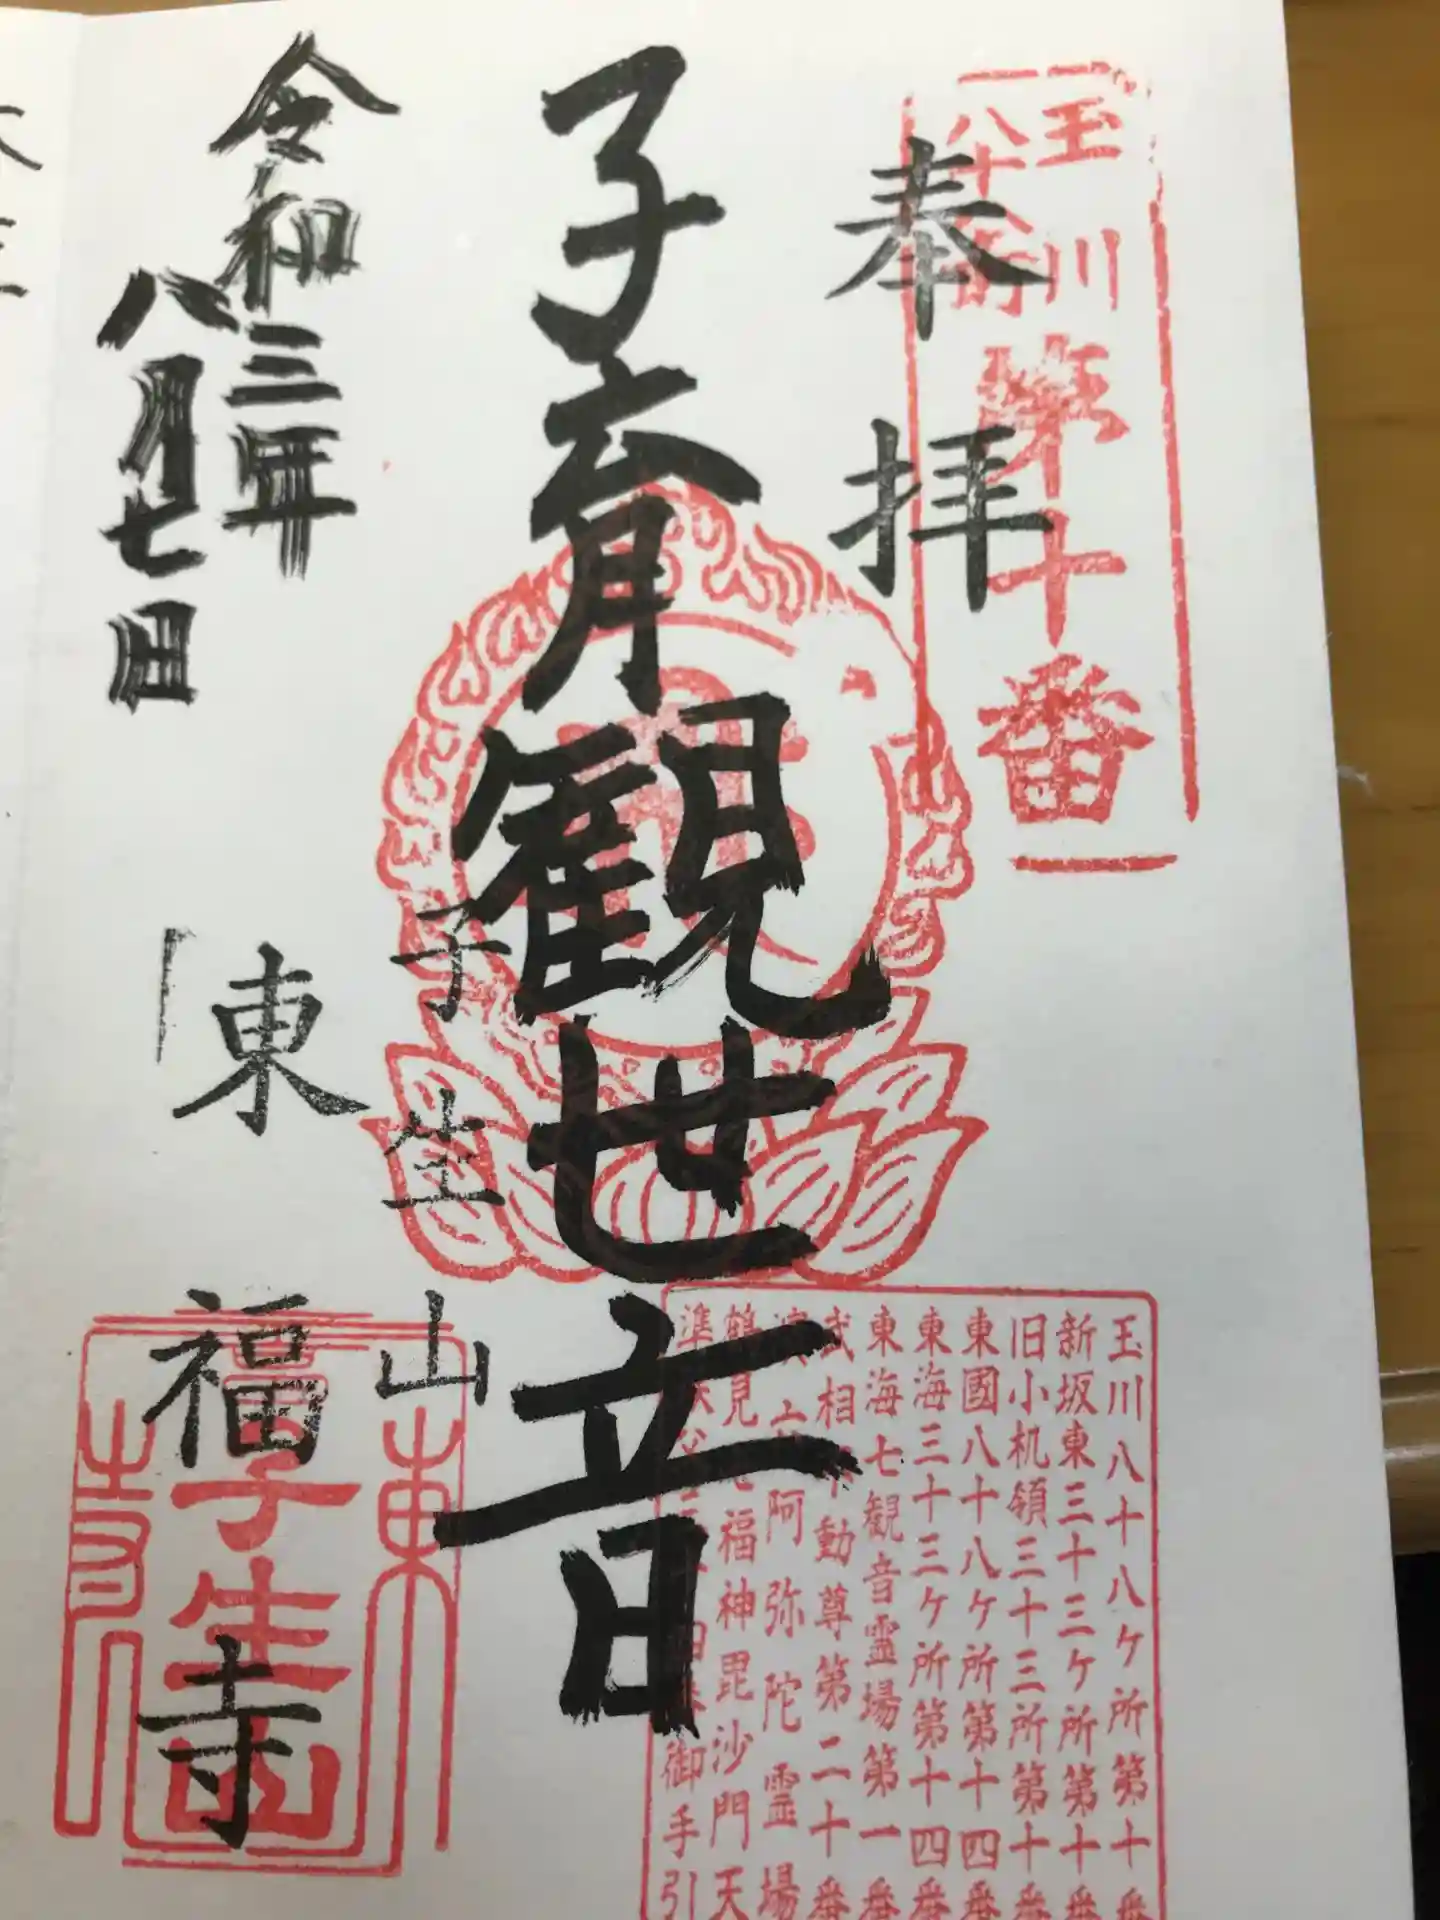 玉川
八十八ヶ所
第十番
奉拝
子育観世音
令和三年
八月七日
子生山
東福寺
子生山
東
寺
玉川八十八ケ所第十番
新坂東三十三ケ所第十番
旧小机領三十三所第十番
東國八十八ケ所第十四番
東海三十三ケ所第十四番
東海七観音霊場第一番
武相不動尊第二十番
阿弥陀霊場
鶴見七福神毘沙門天
御手引